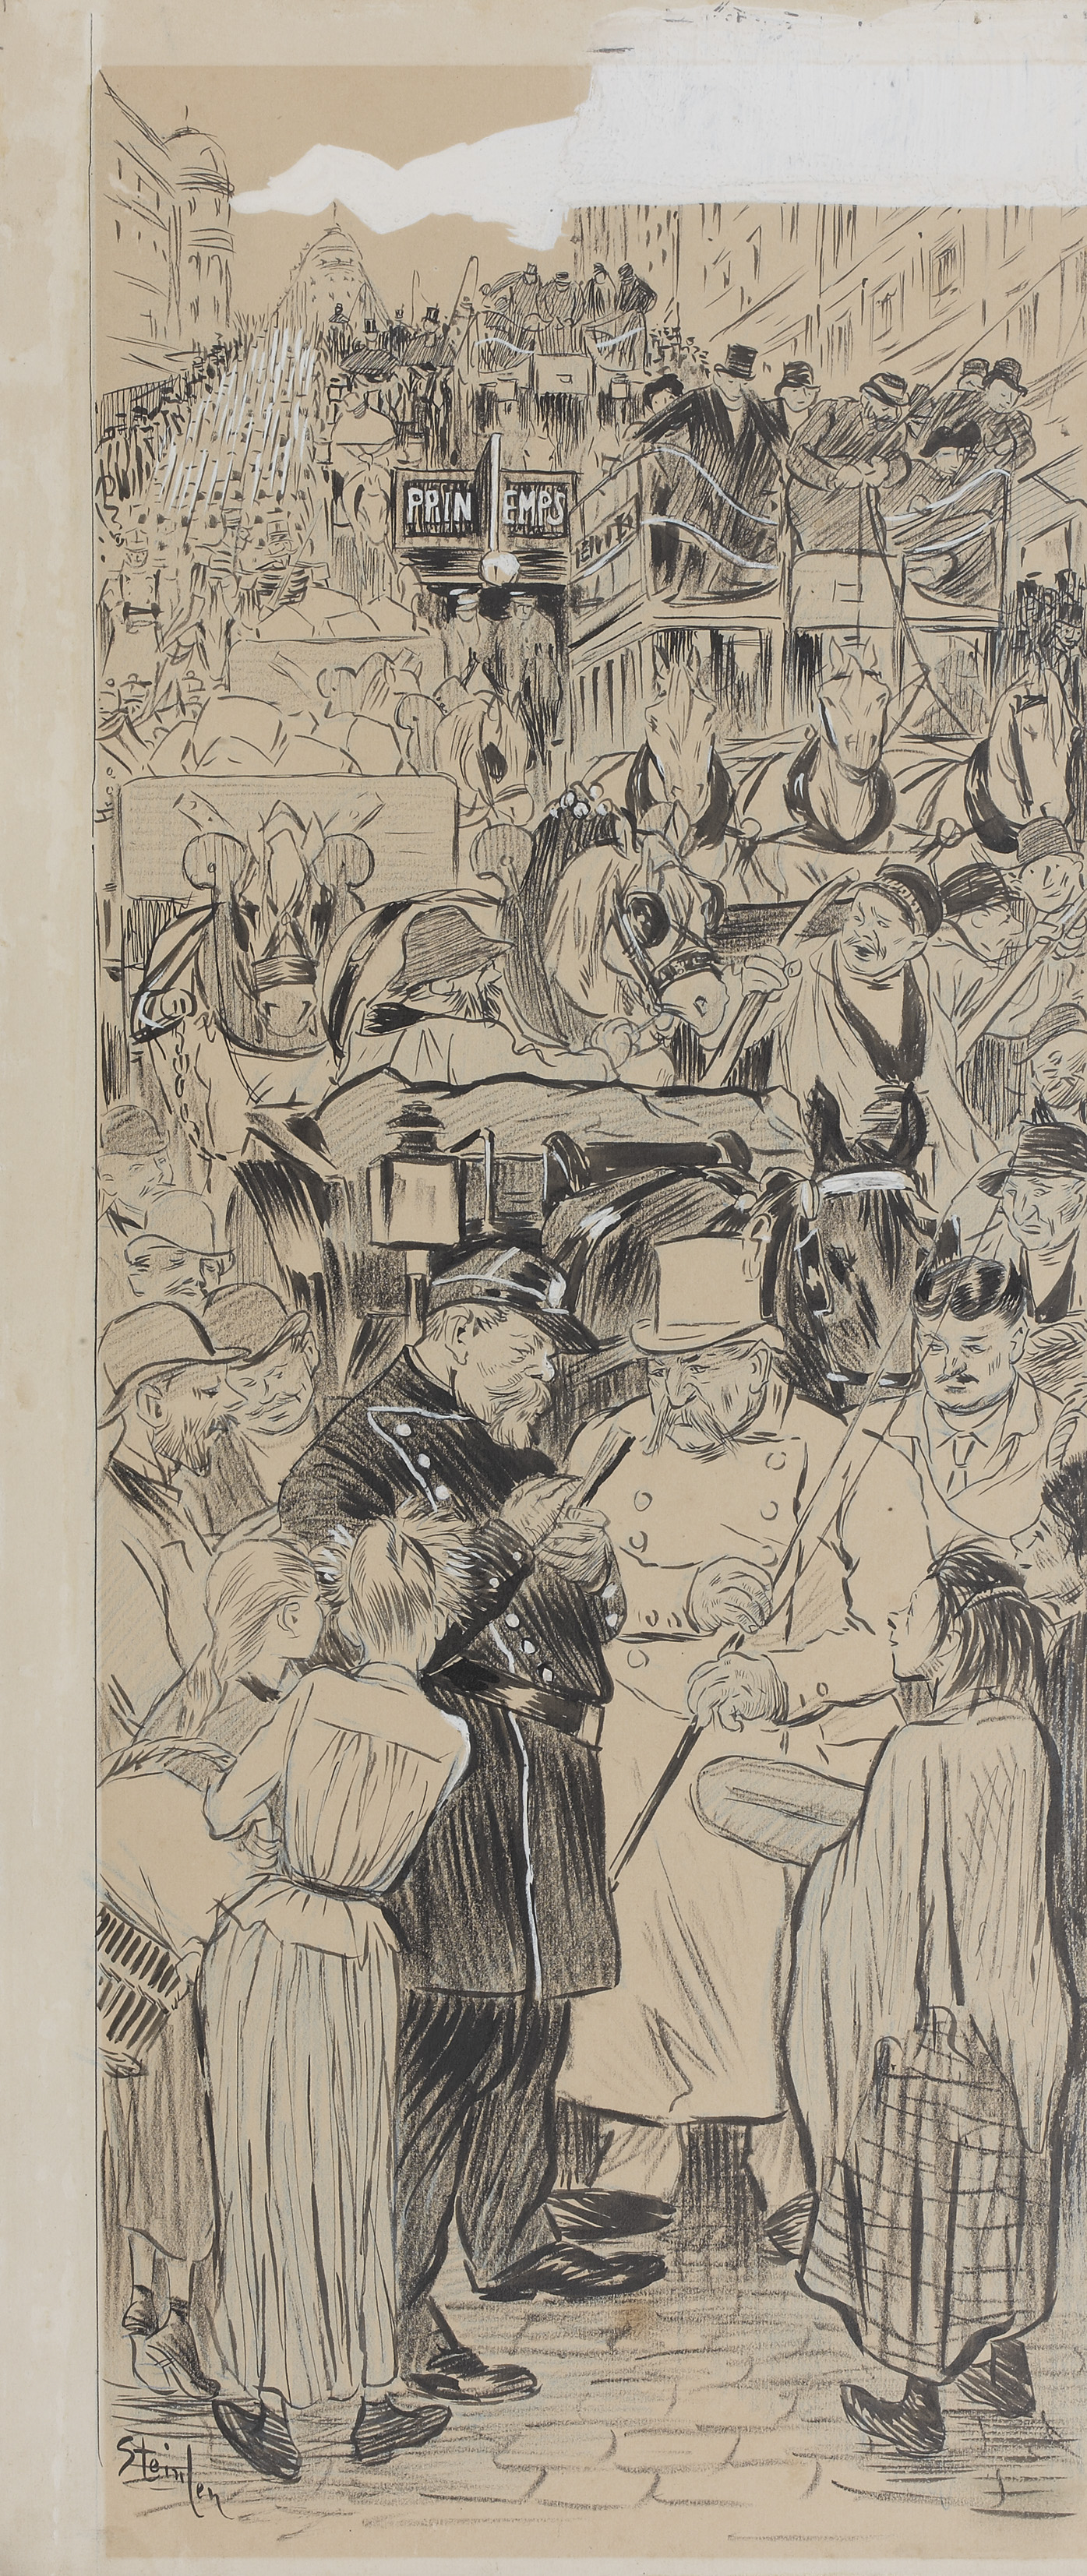 PRIN EMPS
Steinlen